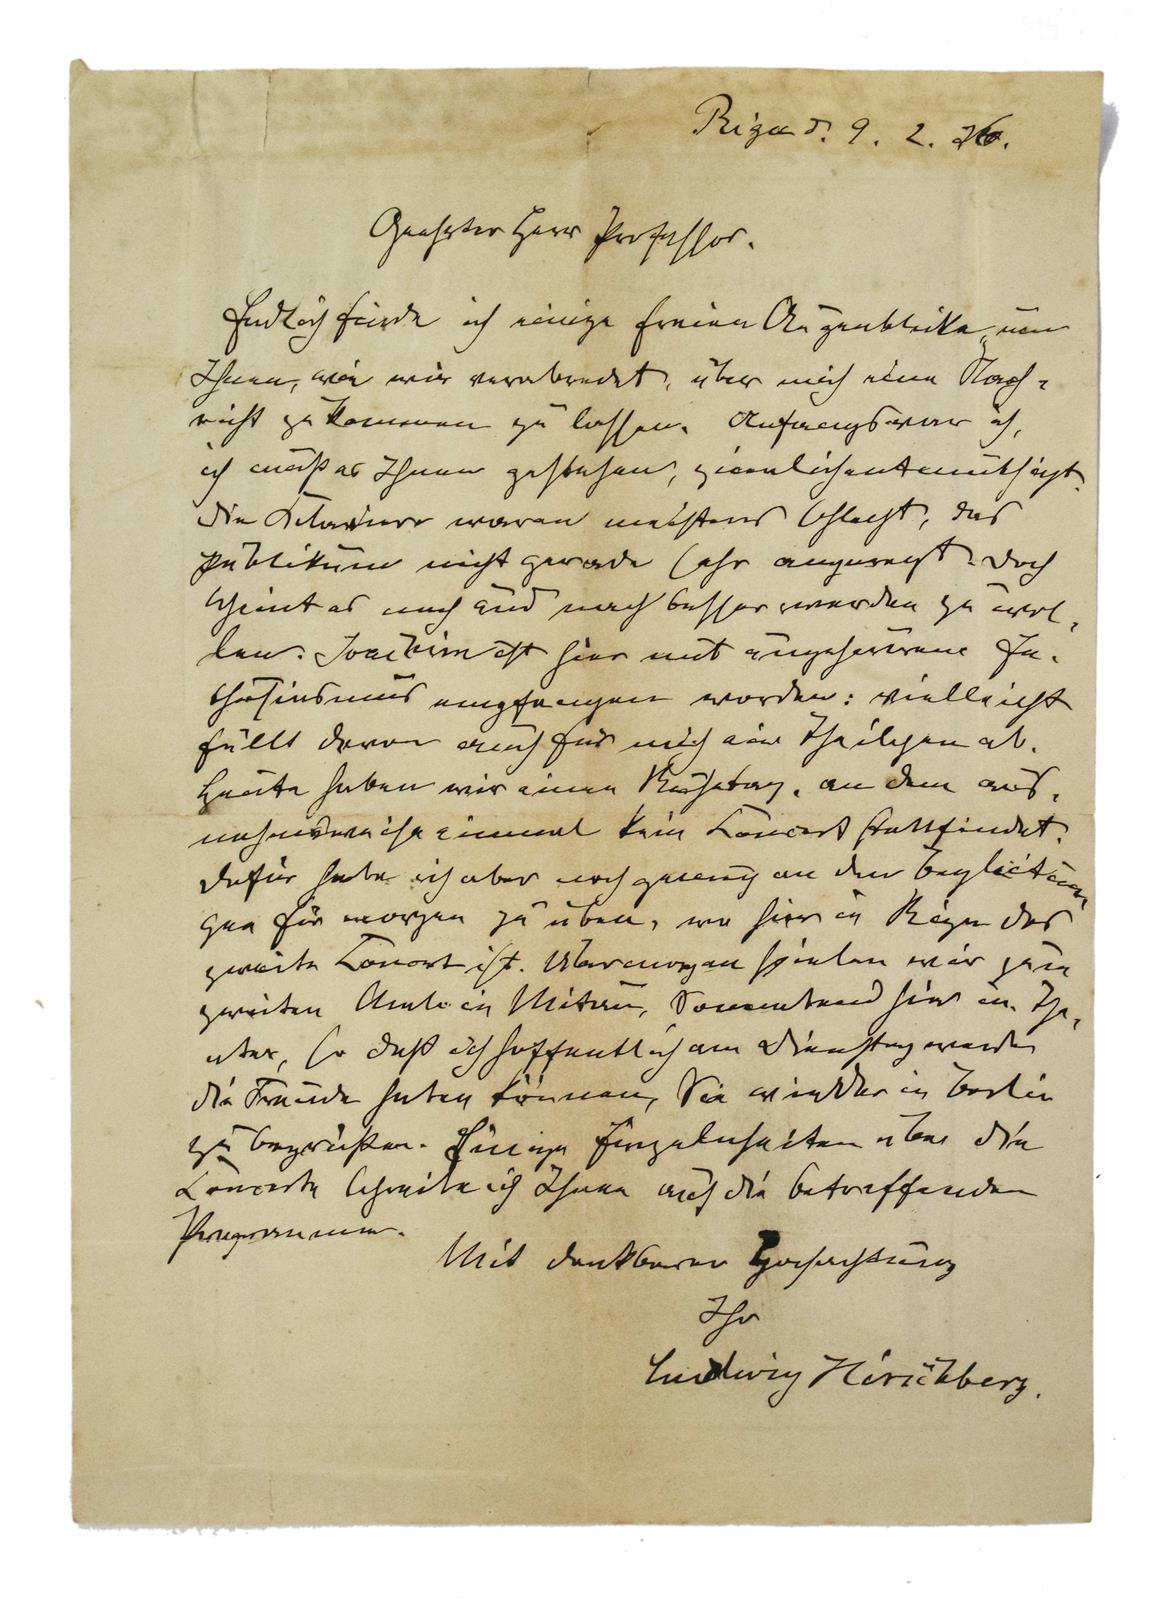 Riga d. 9. 2. 76.
Geehrter Herr Professor.
Endlich finde ich einige freien Augenblicke, um
Ihnen, wie wir verabredet, über mich eine Nach-
richt zukommen zu lassen. Anfangs war ich,
ich muß es Ihnen gestehen, ziemlich entmuthigt.
Die Klaviere waren meistens schlecht, das
Publikum nicht gerade sehr angeregt. Doch
scheint es nach und nach besser werden zu wol-
len. Joachim ist hier mit ungeheurem En-
thusiasmus empfangen worden: vielleicht
fällt davon auch für mich ein Theilchen ab.
Heute haben wir einen Ruhetag, an dem aus-
nahmsweise einmal kein Concert stattfindet.
Dafür habe ich aber noch genug an den Begleitun-
gen für morgen zu üben, wo hier in Riga das
zweite Concert ist. Übermorgen spielen wir zum
zweiten Male in Mitau, Sonnabend hier im The-
ater, so daß ich hoffentlich am Dienstag werde
die Freude haben können, Sie wieder in Berlin
zu begrüßen. Einige Einzelnheiten über die
Concerte schreibe ich Ihnen auf die betreffenden
Programme.
Mit dankbarer Hochachtung
Ihr
Ludwig Hirschberg.